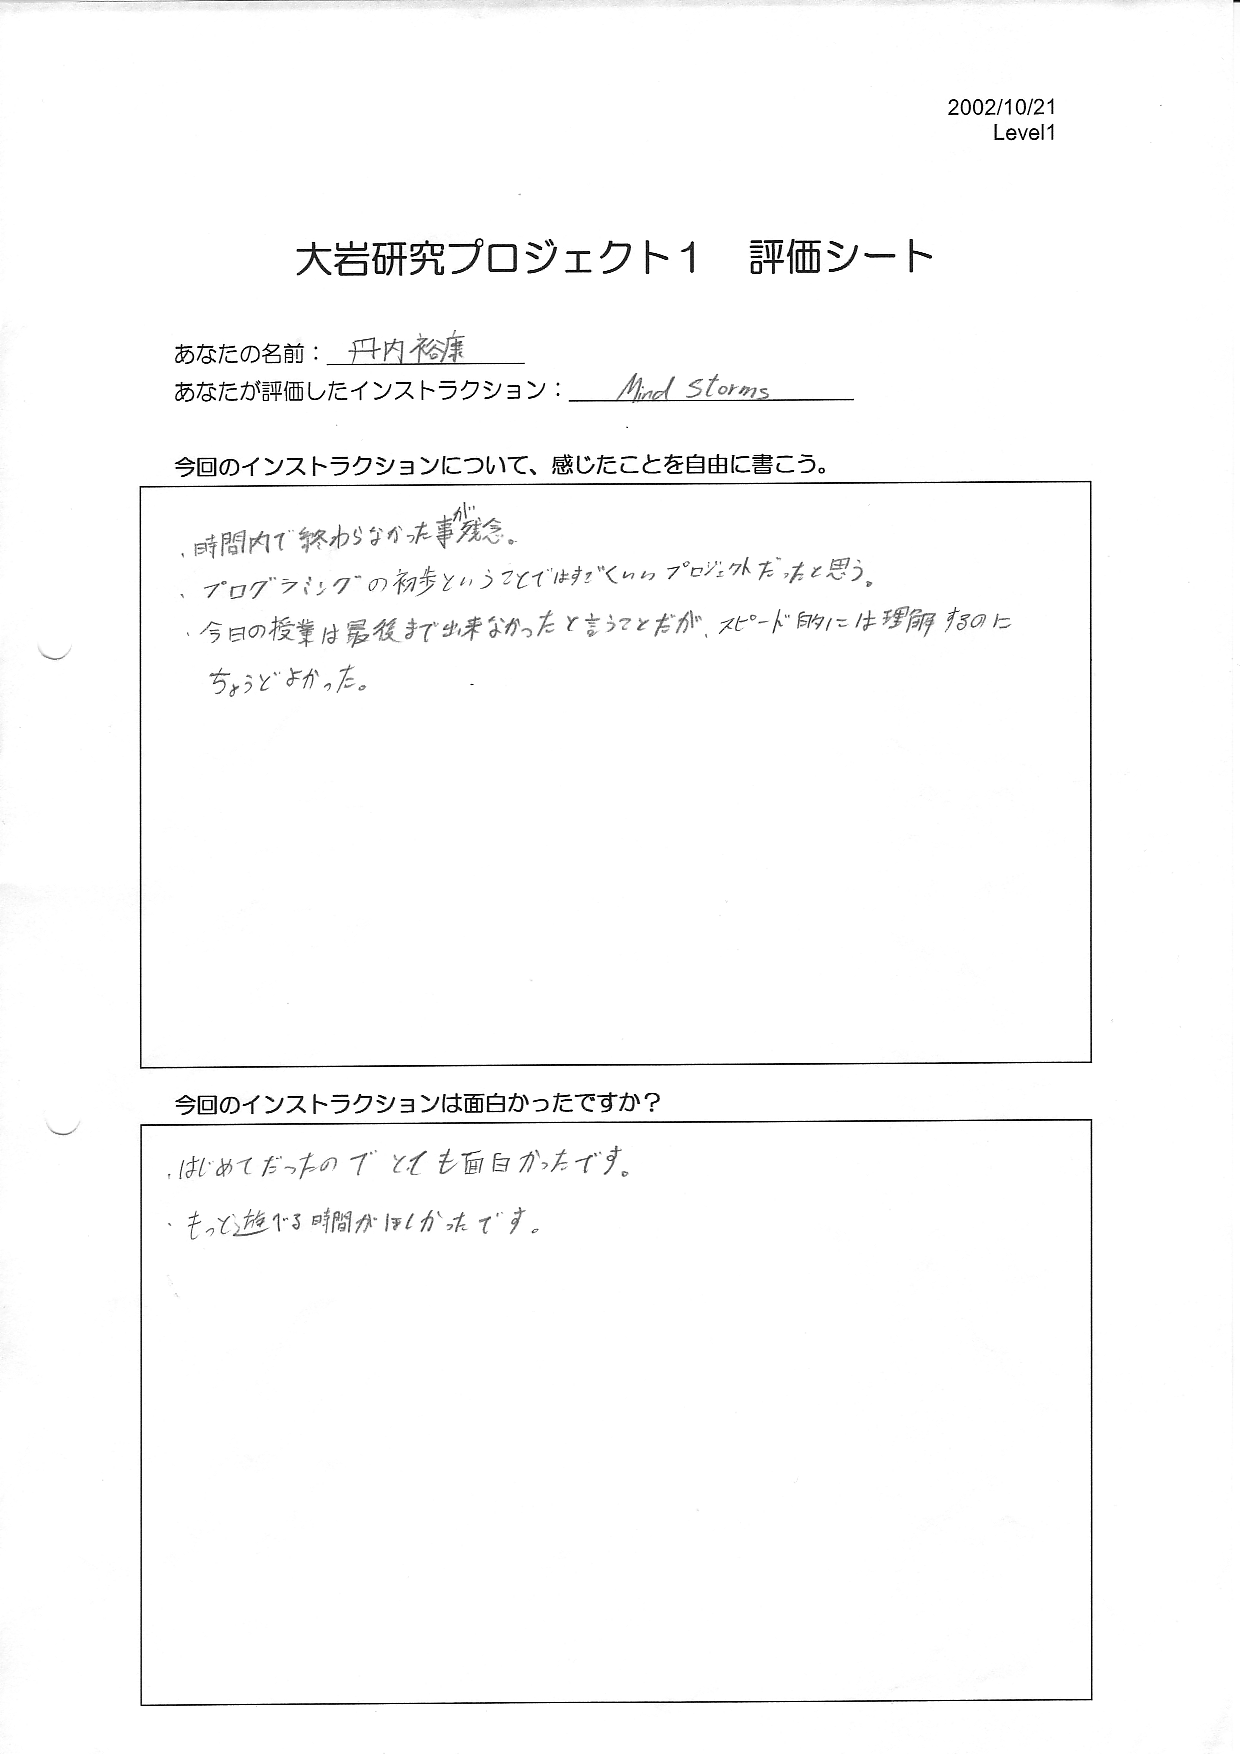 2002/10/21
Level1
大岩研究プロジェクト１　評価シート
あなたの名前：丹内裕康
あなたが評価したインストラクション：Mind Storms
今回のインストラクションについて、感じたことを自由に書こう。
・時間内で終わらなかった事が残念。
・プログラミングの初歩ということではすごくいいプロジェクトだったと思う。
・今日の授業は最後まで出来なかったと言うことだが、スピード的には理解するのに
ちょうどよかった。
今回のインストラクションは面白かったですか？
・はじめてだったのでとても面白かったです。
・もっと遊べる時間がほしかったです。